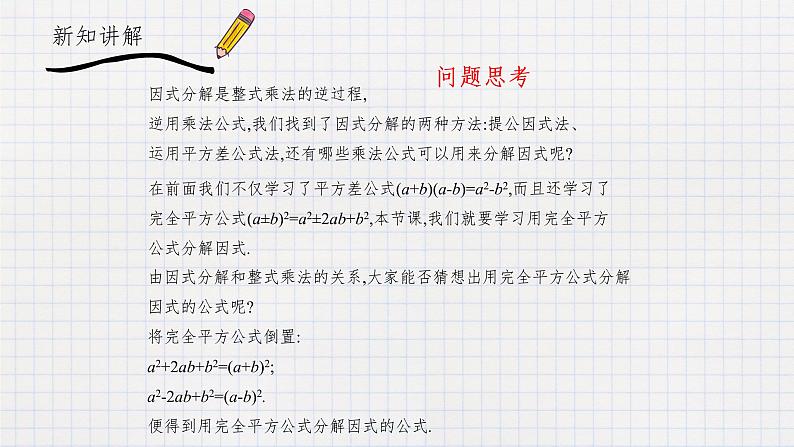 新知讲解
问题思考
因式分解是整式乘法的逆过程,
逆用乘法公式,我们找到了因式分解的两种方法:提公因式法、
运用平方差公式法,还有哪些乘法公式可以用来分解因式呢?
在前面我们不仅学习了平方差公式(a+b)(a-b)=a²-b²,而且还学习了
完全平方公式(a±b)²=a²±2ab+b²,本节课,我们就要学习用完全平方
公式分解因式.
由因式分解和整式乘法的关系,大家能否猜想出用完全平方公式分解
因式的公式呢?
将完全平方公式倒置:
a²+2ab+b²=(a+b)²;
a²-2ab+b²=(a-b)².
便得到用完全平方公式分解因式的公式.